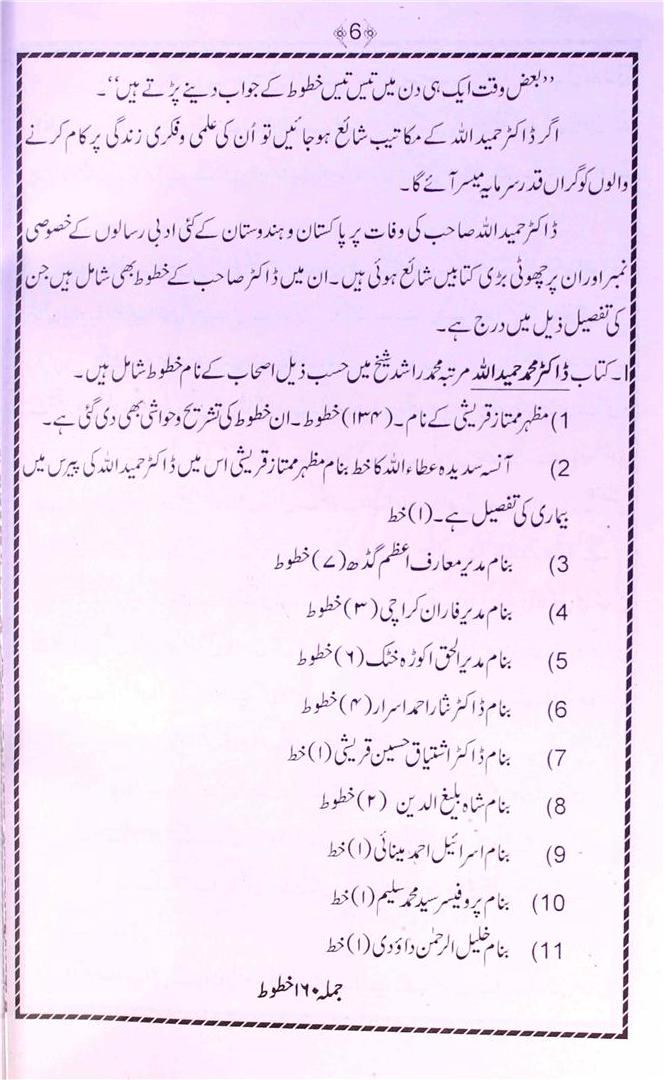 6
’’بعض وقت ایک ہی دن میں تیس تیس خطوط کے جواب دینے پڑتے ہیں‘‘۔
اگر ڈاکٹر حمید اللہ کے مکاتیب شائع ہوجائیں تو اُن کی علمی و فکری زندگی پر کام کرنے
والوں کو گراں قدر سرمایہ میسر آئے گا۔
ڈاکٹر حمید اللہ صاحب کی وفات پر پاکستان و ہندوستان کے کئی ادبی رسالوں کے خصوصی
نمبر اور ان پر چھوٹی بڑی کتابیں شائع ہوئی ہیں۔ ان میں ڈاکٹر صاحب کے خطوط بھی شامل ہیں جن
کی تفصیل ذیل میں درج ہے۔
۱۔ کتاب ڈاکٹر محمد حمید اللہ مرتبہ محمد راشد شیخ میں حسب ذیل اصحاب کے نام خطوط شامل ہیں۔
1) مظہر ممتاز قریشی کے نام۔ (۱۳۴) خطوط۔ ان خطوط کی تشریح و حواشی بھی دی گئی ہے۔
2) آنسہ سدیدہ عطاء اللہ کا خط بنام مظہر ممتاز قریشی اس میں ڈاکٹر حمید اللہ کی پیرس میں
بیماری کی تفصیل ہے۔ (۱) خط
3) بنام مدیر معارف اعظم گڈھ (۷) خطوط
4) بنام مدیر فاران کراچی (۳) خطوط
5) بنام مدیر الحق اکوڑہ خٹک (۶) خطوط
6) بنام ڈاکٹر نثار احمد اسرار (۴) خطوط
7) بنام ڈاکٹر اشتیاق حسین قریشی (۱) خط
8) بنام شاہ بلیغ الدین (۲) خطوط
9) بنام اسرائیل احمد مینائی (۱) خط
10) بنام پروفیسر سید محمد سلیم (۱) خط
11) بنام خلیل الرحمٰن داؤدی (۱) خط
جملہ ۱۶۰ خطوط